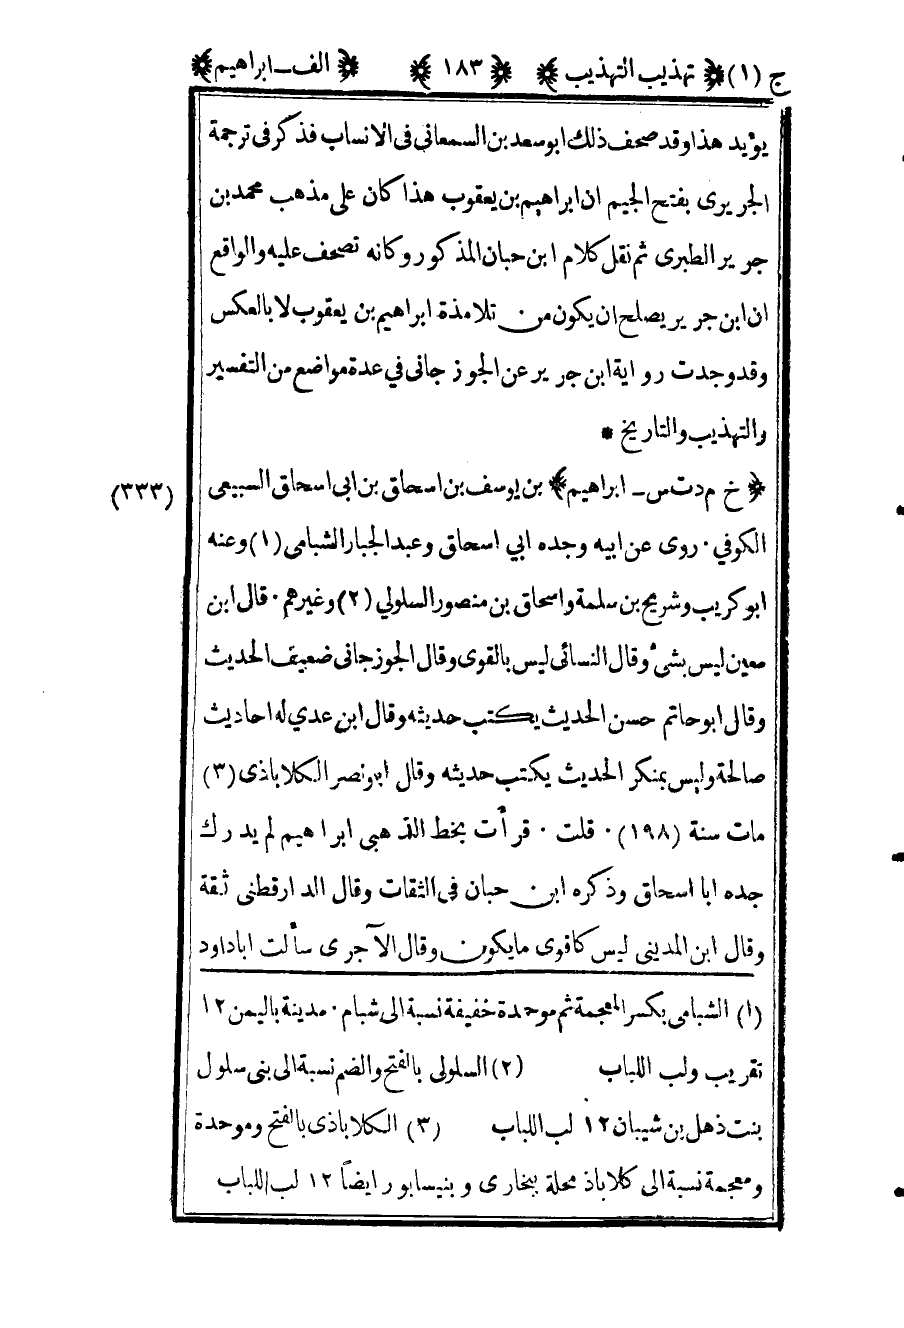 ج (١) ﴿ تهذيب التهذيب ﴾ ﴿ ١٨٣ ﴾ ﴿ الف ــ ابراهيم ﴾
يؤيد هذا وقد صحف ذلك ابو سعد بن السمعانى فى الانساب فذكر فى ترجمة
الجريرى بفتح الجيم ان ابراهيم بن يعقوب هذا كان على مذهب محمد بن
جرير الطبرى ثم نقل كلام ابن حبان المذكور وكانه تصحف عليه والواقع
ان ابن جرير يصلح ان يكون من تلامذة ابراهيم بن يعقوب لا بالعكس
وقد وجدت رواية ابن جرير عن الجوزجانى في عدة مواضع من التفسير
والتهذيب والتاريخ *
﴿ خ م د ت س ــ ابراهيم ﴾ بن يوسف بن اسحاق بن ابى اسحاق السبيعى (٣٣٣)
الكوفي · روى عن ابيه وجده ابي اسحاق وعبد الجبار الشبامى (١) وعنه
ابو كريب وشريح بن سلمة واسحاق بن منصور السلولي (٢) وغيرهم · قال ابن
معين ليس بشئ وقال النسائى ليس بالقوى وقال الجوزجانى ضعيف الحديث
وقال ابو حاتم حسن الحديث يكتب حديثه وقال ابن عدي له احاديث
صالحة وليس بمنكر الحديث يكتب حديثه وقال ابو نصر الكلاباذى (٣)
مات سنة (١٩٨) · قلت · قرأت بخط الذهبي ابراهيم لم يدرك
جده ابا اسحاق وذكره ابن حبان في الثقات وقال الدارقطنى ثقة
وقال ابن المدينى ليس كاقوى ما يكون وقال الآجرى سألت اباداود
(١) الشبامى بكسر المعجمة ثم موحدة خفيفة نسبة الى شبام · مدينة باليمن ١٢
تقريب ولب اللباب (٢) السلولى بالفتح والضم نسبة الى بنى سلول
بنت ذهل بن شيبان ١٢ لب اللباب (٣) الكلاباذى بالفتح وموحدة
ومعجمة نسبة الى كلاباذ محلة ببخارى وبنيسابور ايضاً ١٢ لب اللباب